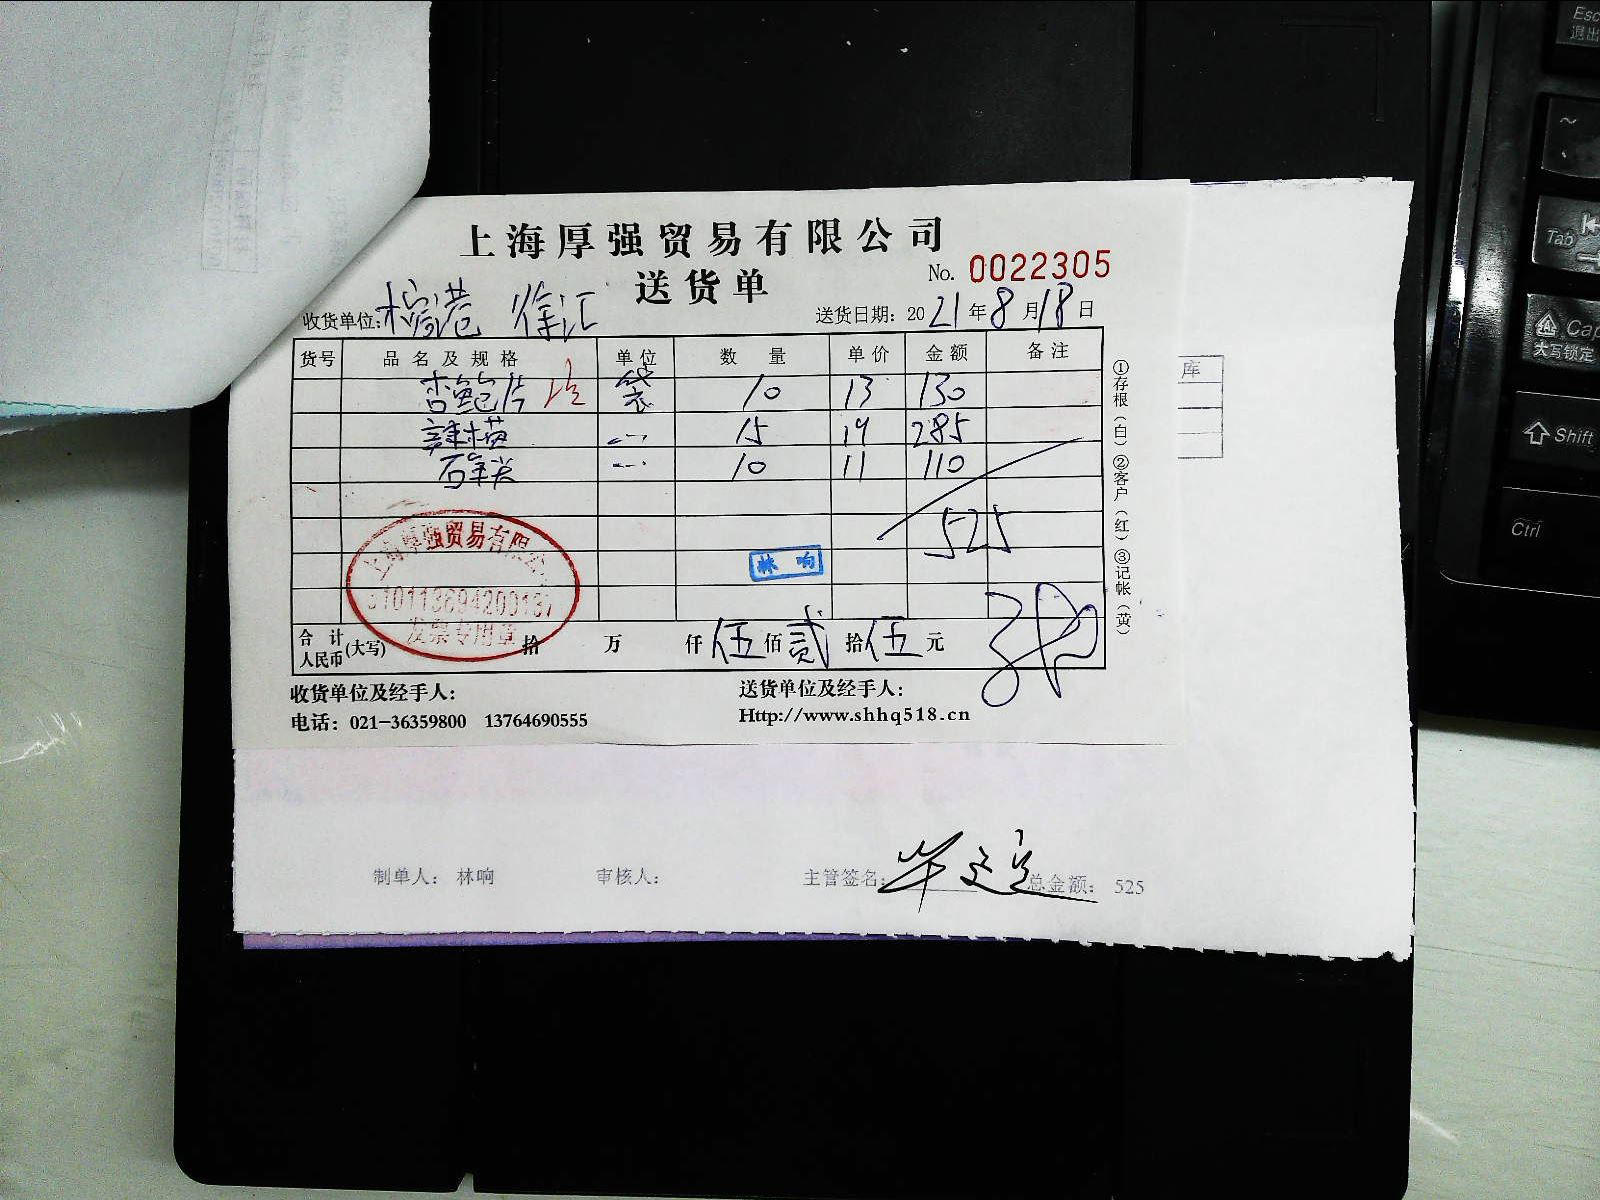 上海厚强贸易有限公司
送货单
No. 0022305
收货单位: 徐汇
送货日期: 2021年8月18日
货号 品名及规格 单位 数量 单价 金额 备注
杏鲍片 袋 10 13 130
15 19 285
10 11 110
525
上海厚强贸易有限公
发票专用章
林响
合计人民币(大写) 拾 万 仟 伍 佰 贰 拾 伍 元
①存根(白)②客户(红)③记帐(黄)
收货单位及经手人:
送货单位及经手人:
电话: 021-36359800 13764690555
Http://www.shhq518.cn
库
制单人: 林响 审核人: 主管签名: 总金额: 525
Esc
退出
~
Tab
Cap
大写锁定
Shift
Ctrl